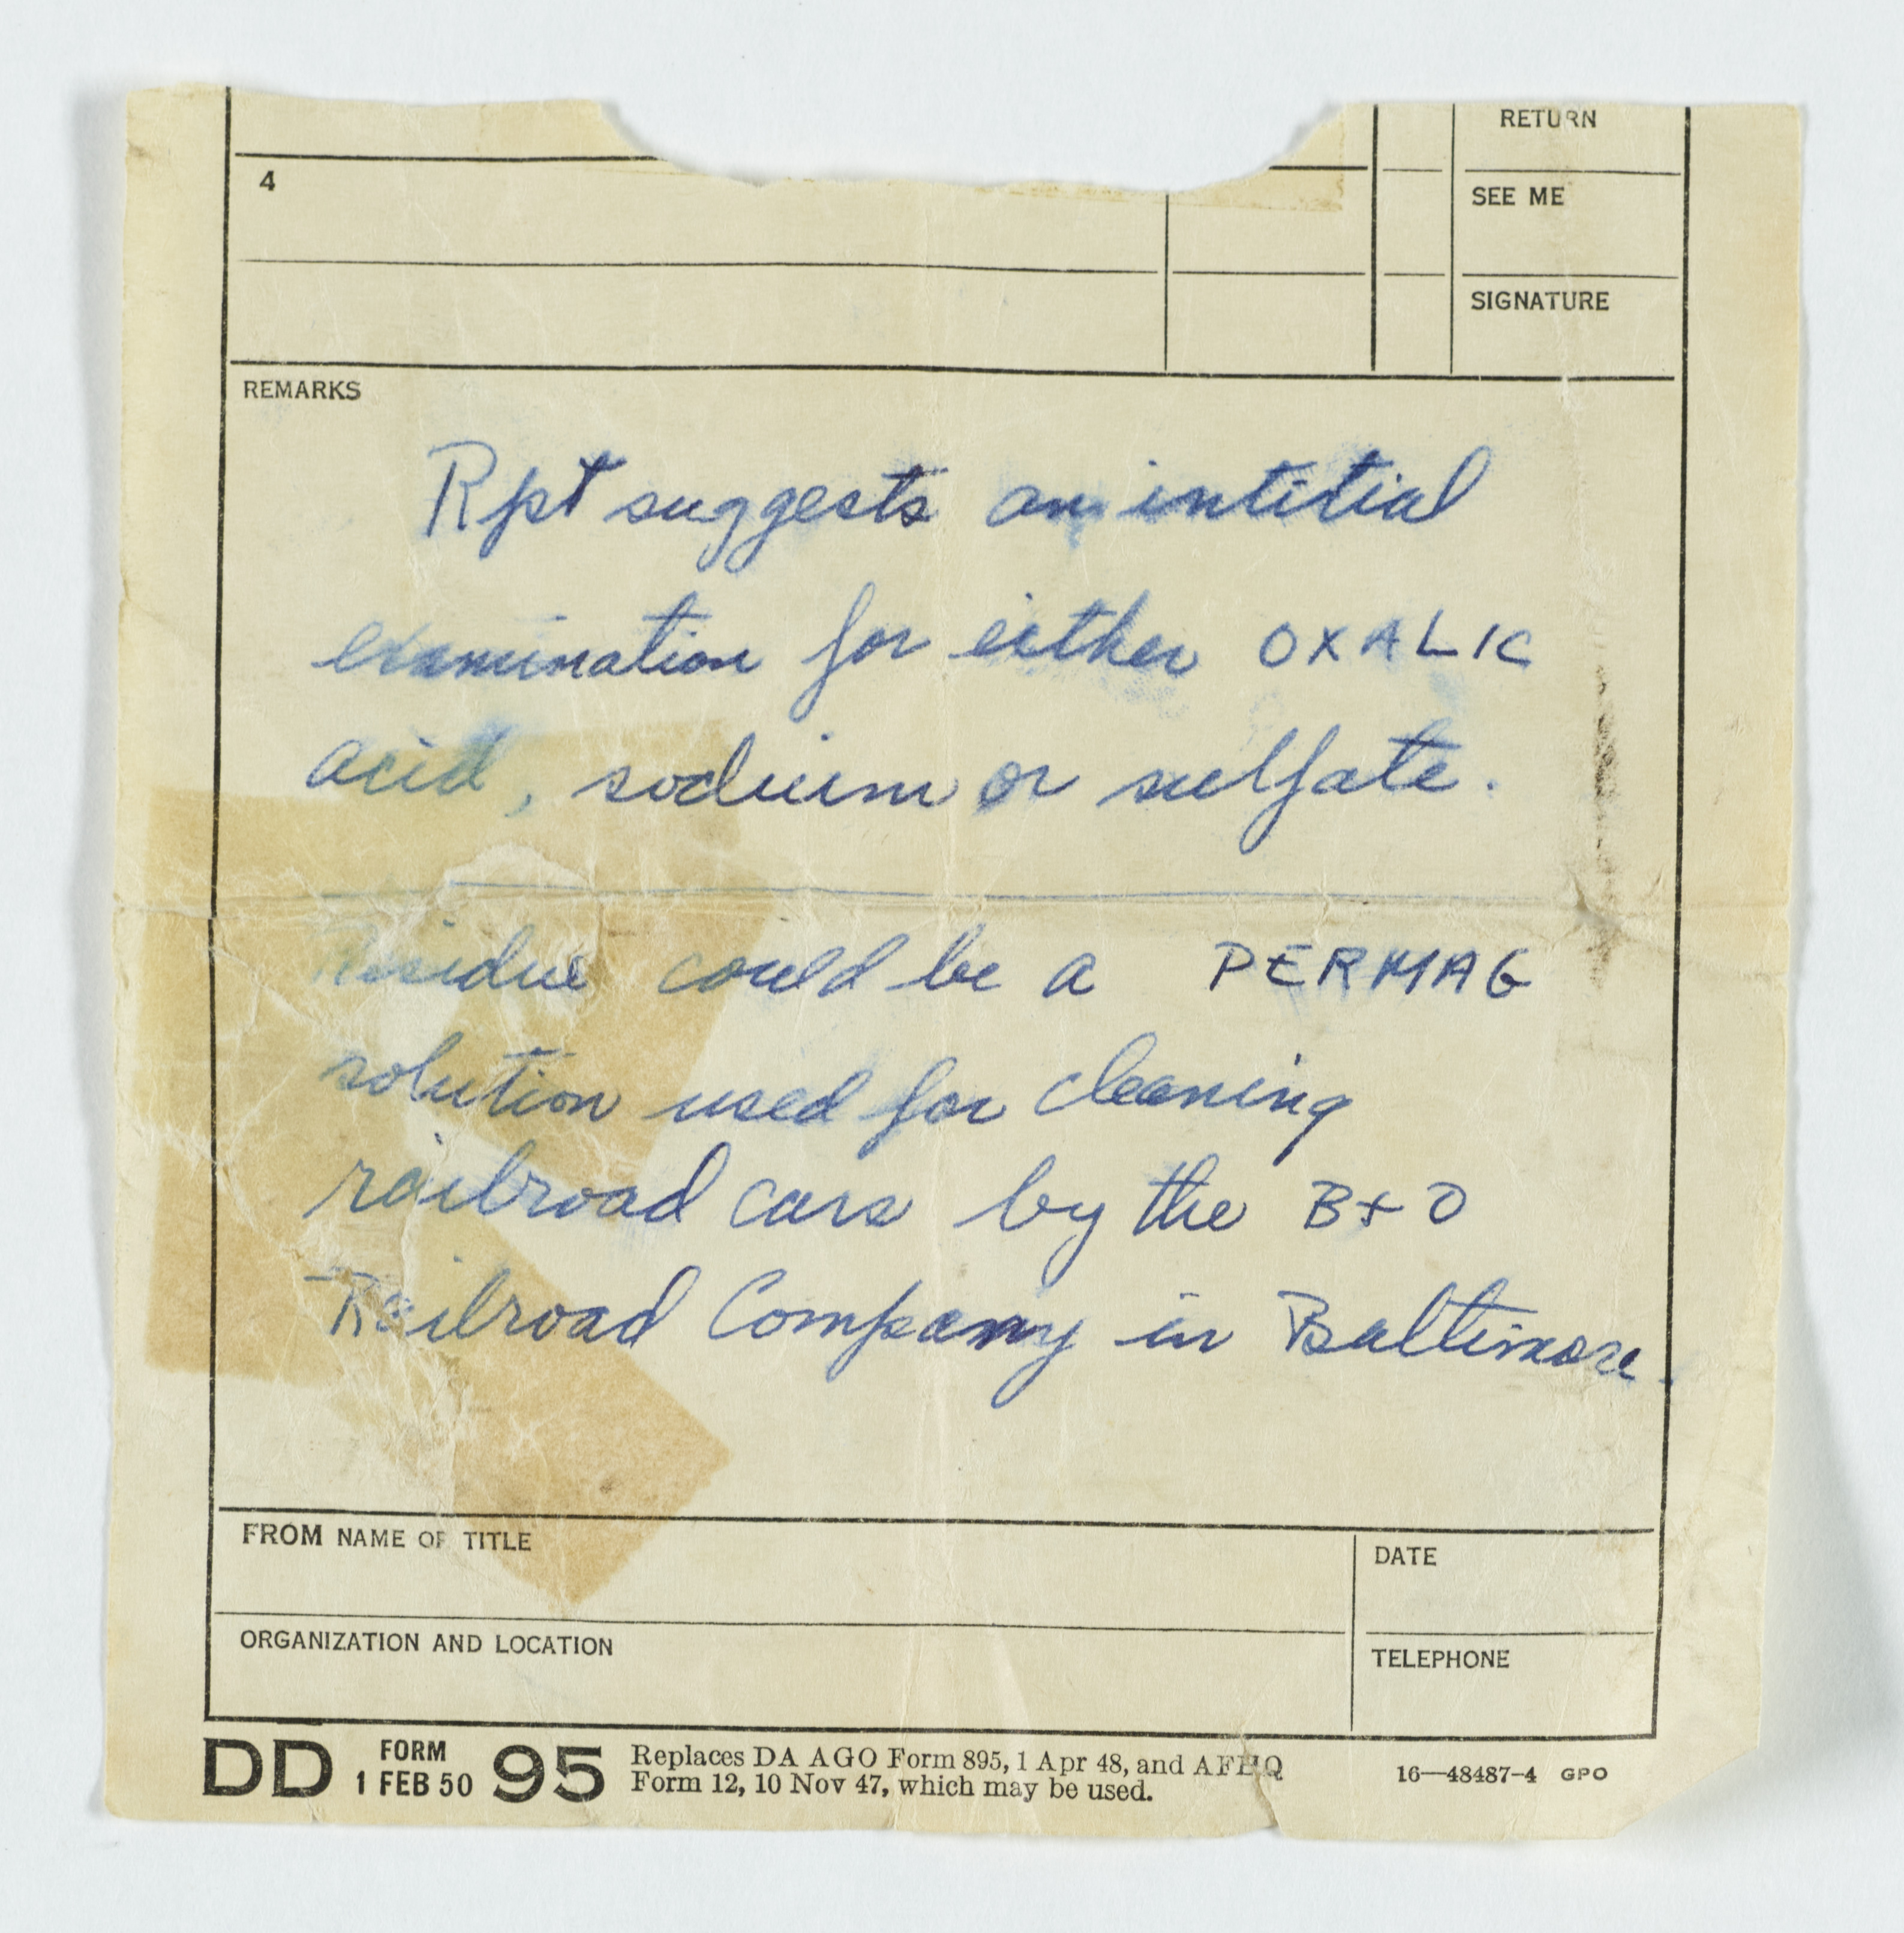 RETURN
4
SEE ME
SIGNATURE
REMARKS
Rpt suggests an intitial
examination for either OXALIC
acid, sodium or sulfate.
Residue could be a PERMAG
solution used for cleaning
railroad cars by the B+O
Railroad Company in Baltimore.
FROM NAME OF TITLE
DATE
ORGANIZATION AND LOCATION
TELEPHONE
DD FORM 1 FEB 50 95
Replaces DA AGO Form 895, 1 Apr 48, and AFHQ
Form 12, 10 Nov 47, which may be used.
16—48487-4 GPO